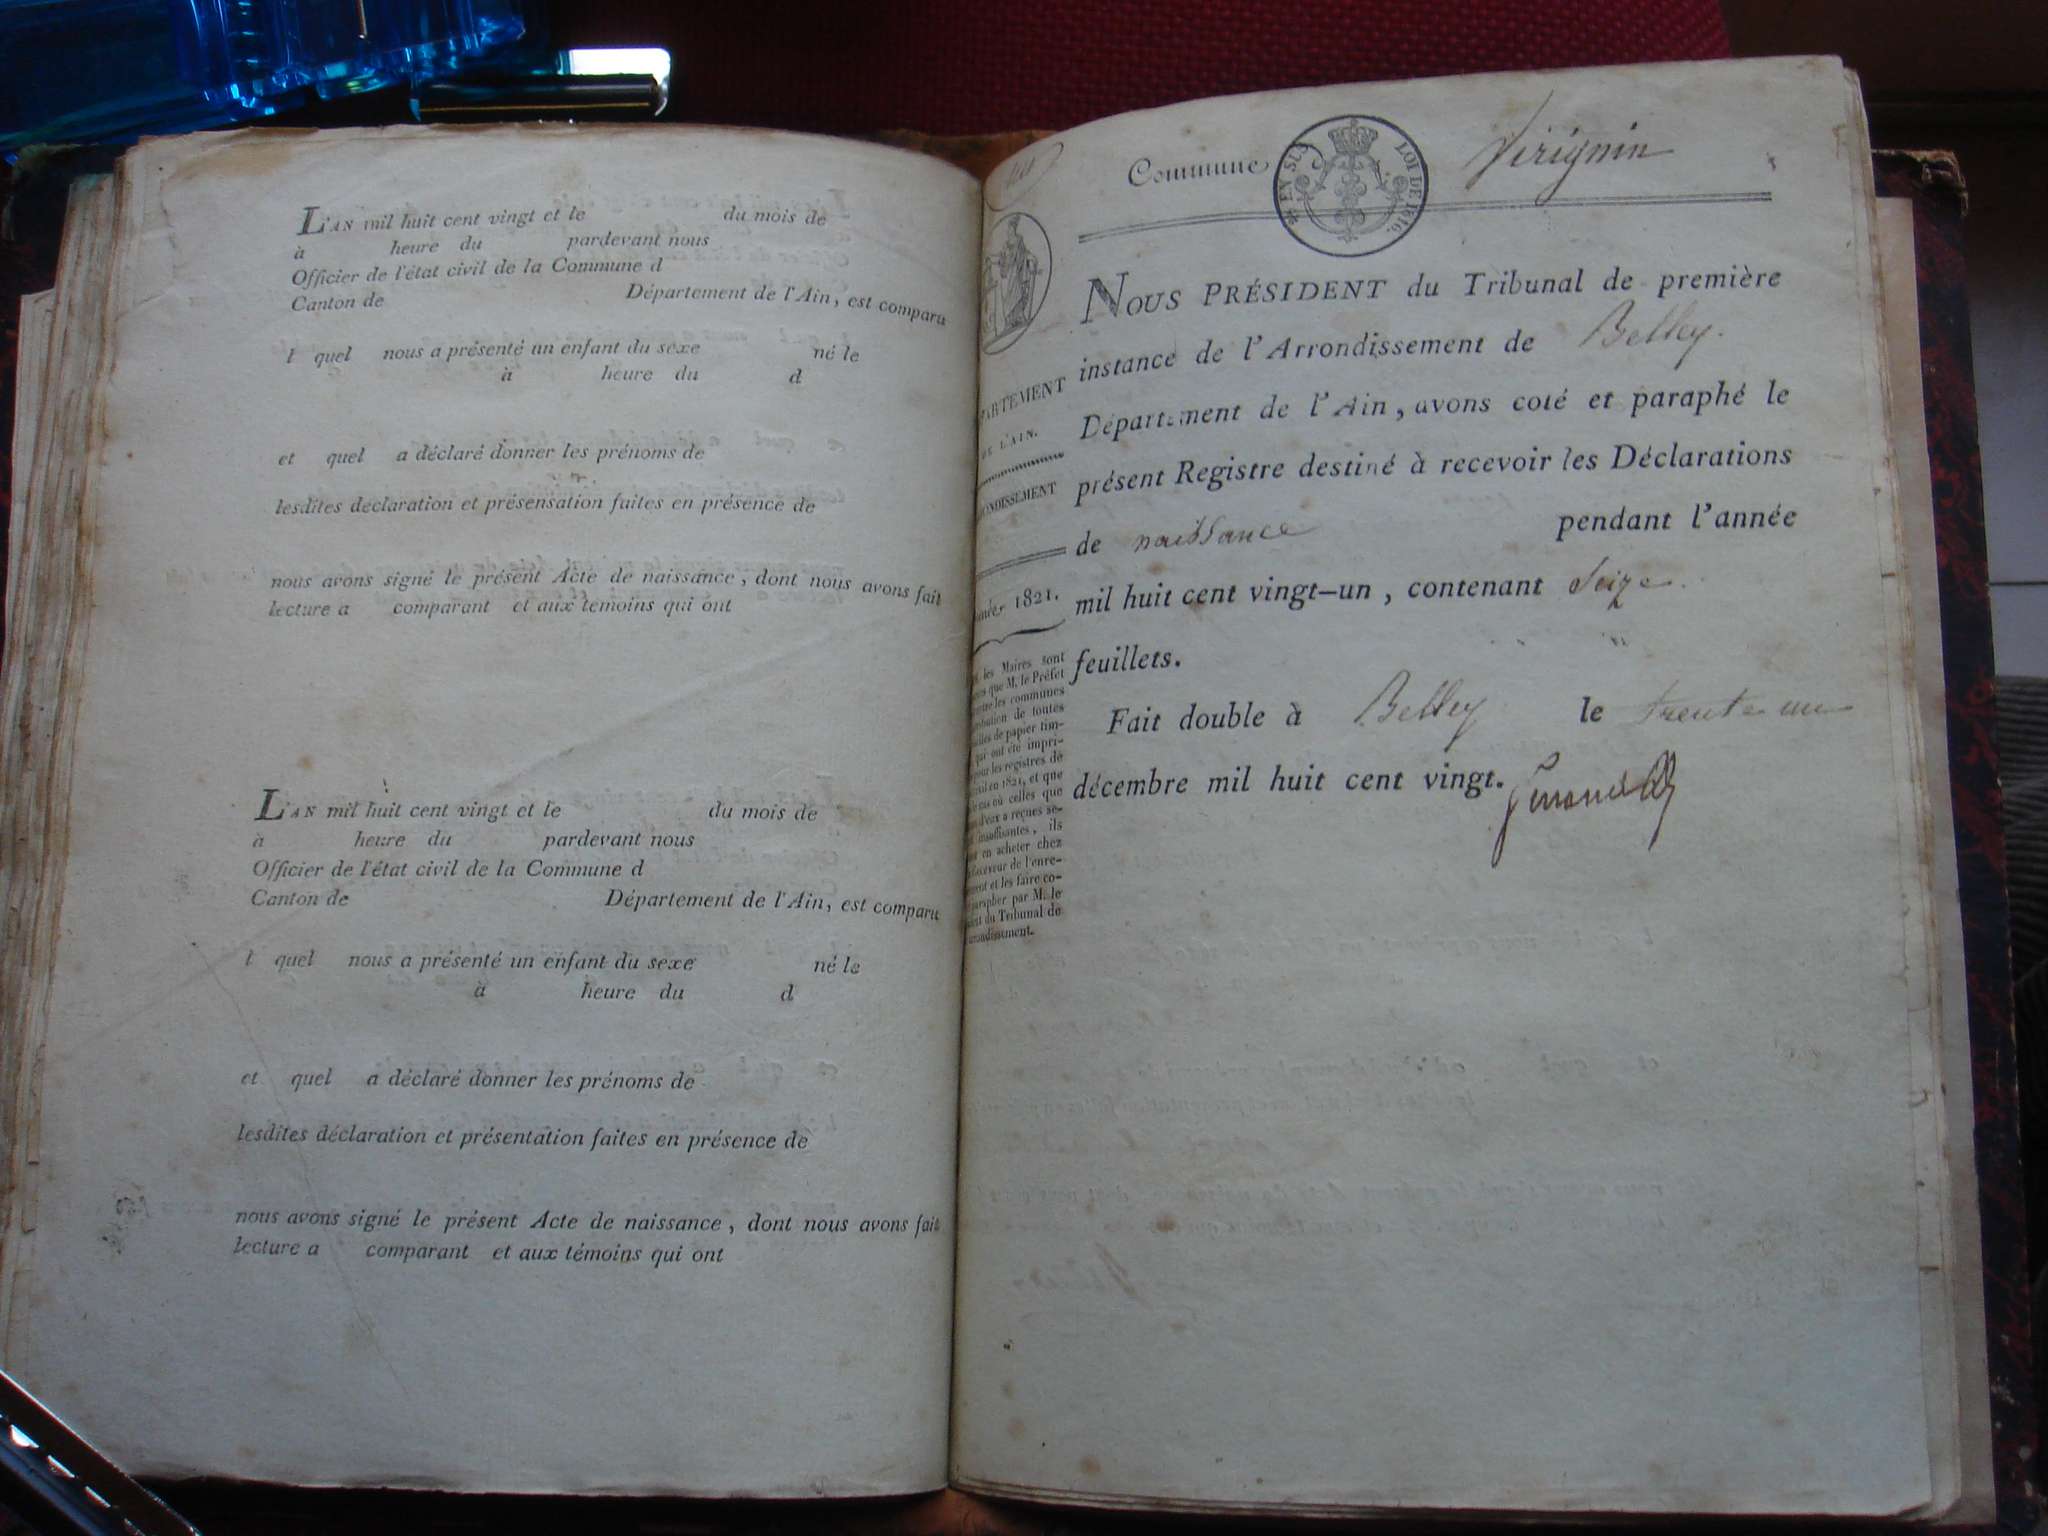 L'AN mil huit cent vingt et le du mois de
à heure du pardevant nous
Officier de l'état civil de la Commune d
Canton de Département de l'Ain, est comparu
l quel nous a présenté un enfant du sexe né le
à heure du d
et quel a déclaré donner les prénoms de
lesdites declaration et présensation faites en présence de
nous avons signé le présent Acte de naissance, dont nous avons fait
lecture a comparant et aux temoins qui ont
L'AN mil huit cent vingt et le du mois de
à heure du pardevant nous
Officier de l'état civil de la Commune d
Canton de Département de l'Ain, est comparu
l quel nous a présenté un enfant du sexe né le
à heure du d
et quel a déclaré donner les prénoms de
lesdites déclaration et présentation faites en présence de
nous avons signé le présent Acte de naissance, dont nous avons fait
lecture a comparant et aux témoins qui ont
Commune Virignin
EN SUS LOI DE 1816.
NOUS PRÉSIDENT du Tribunal de première
instance de l'Arrondissement de Belley.
Département de l'Ain, avons coté et paraphé le
présent Registre destiné à recevoir les Déclarations
de naissance pendant l'année
mil huit cent vingt-un, contenant Seize
feuillets.
Fait double à Belley le trente un
décembre mil huit cent vingt.
PARTEMENT
DE L'AIN.
ONDISSEMENT
1821.
les Maires sont
que M. le Préfet
les communes
de toutes
de papier tim-
qui ont été impri-
pour les registres de
en 1821, et que
cas où celles que
d'eux a reçues se-
insuffisantes, ils
en acheter chez
Receveur de l'enre-
et les faire co-
parapher par M. le
du Tribunal de